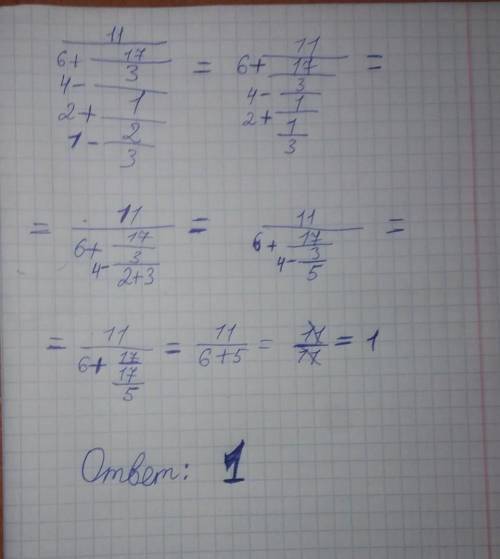 11 / (6 + 17 / (4 - 3 / (2 + 1 / (1 - 2 / 3)))) = 11 / (6 + 17 / (4 - 3 / (2 + 1 / (1 / 3)))) =
= 11 / (6 + 17 / (4 - 3 / (2+3))) = 11 / (6 + 17 / (4 - 3 / 5)) =
= 11 / (6 + 17 / (17 / 5)) = 11 / (6+5) = 11 / 11 = 1
Ответ: 1